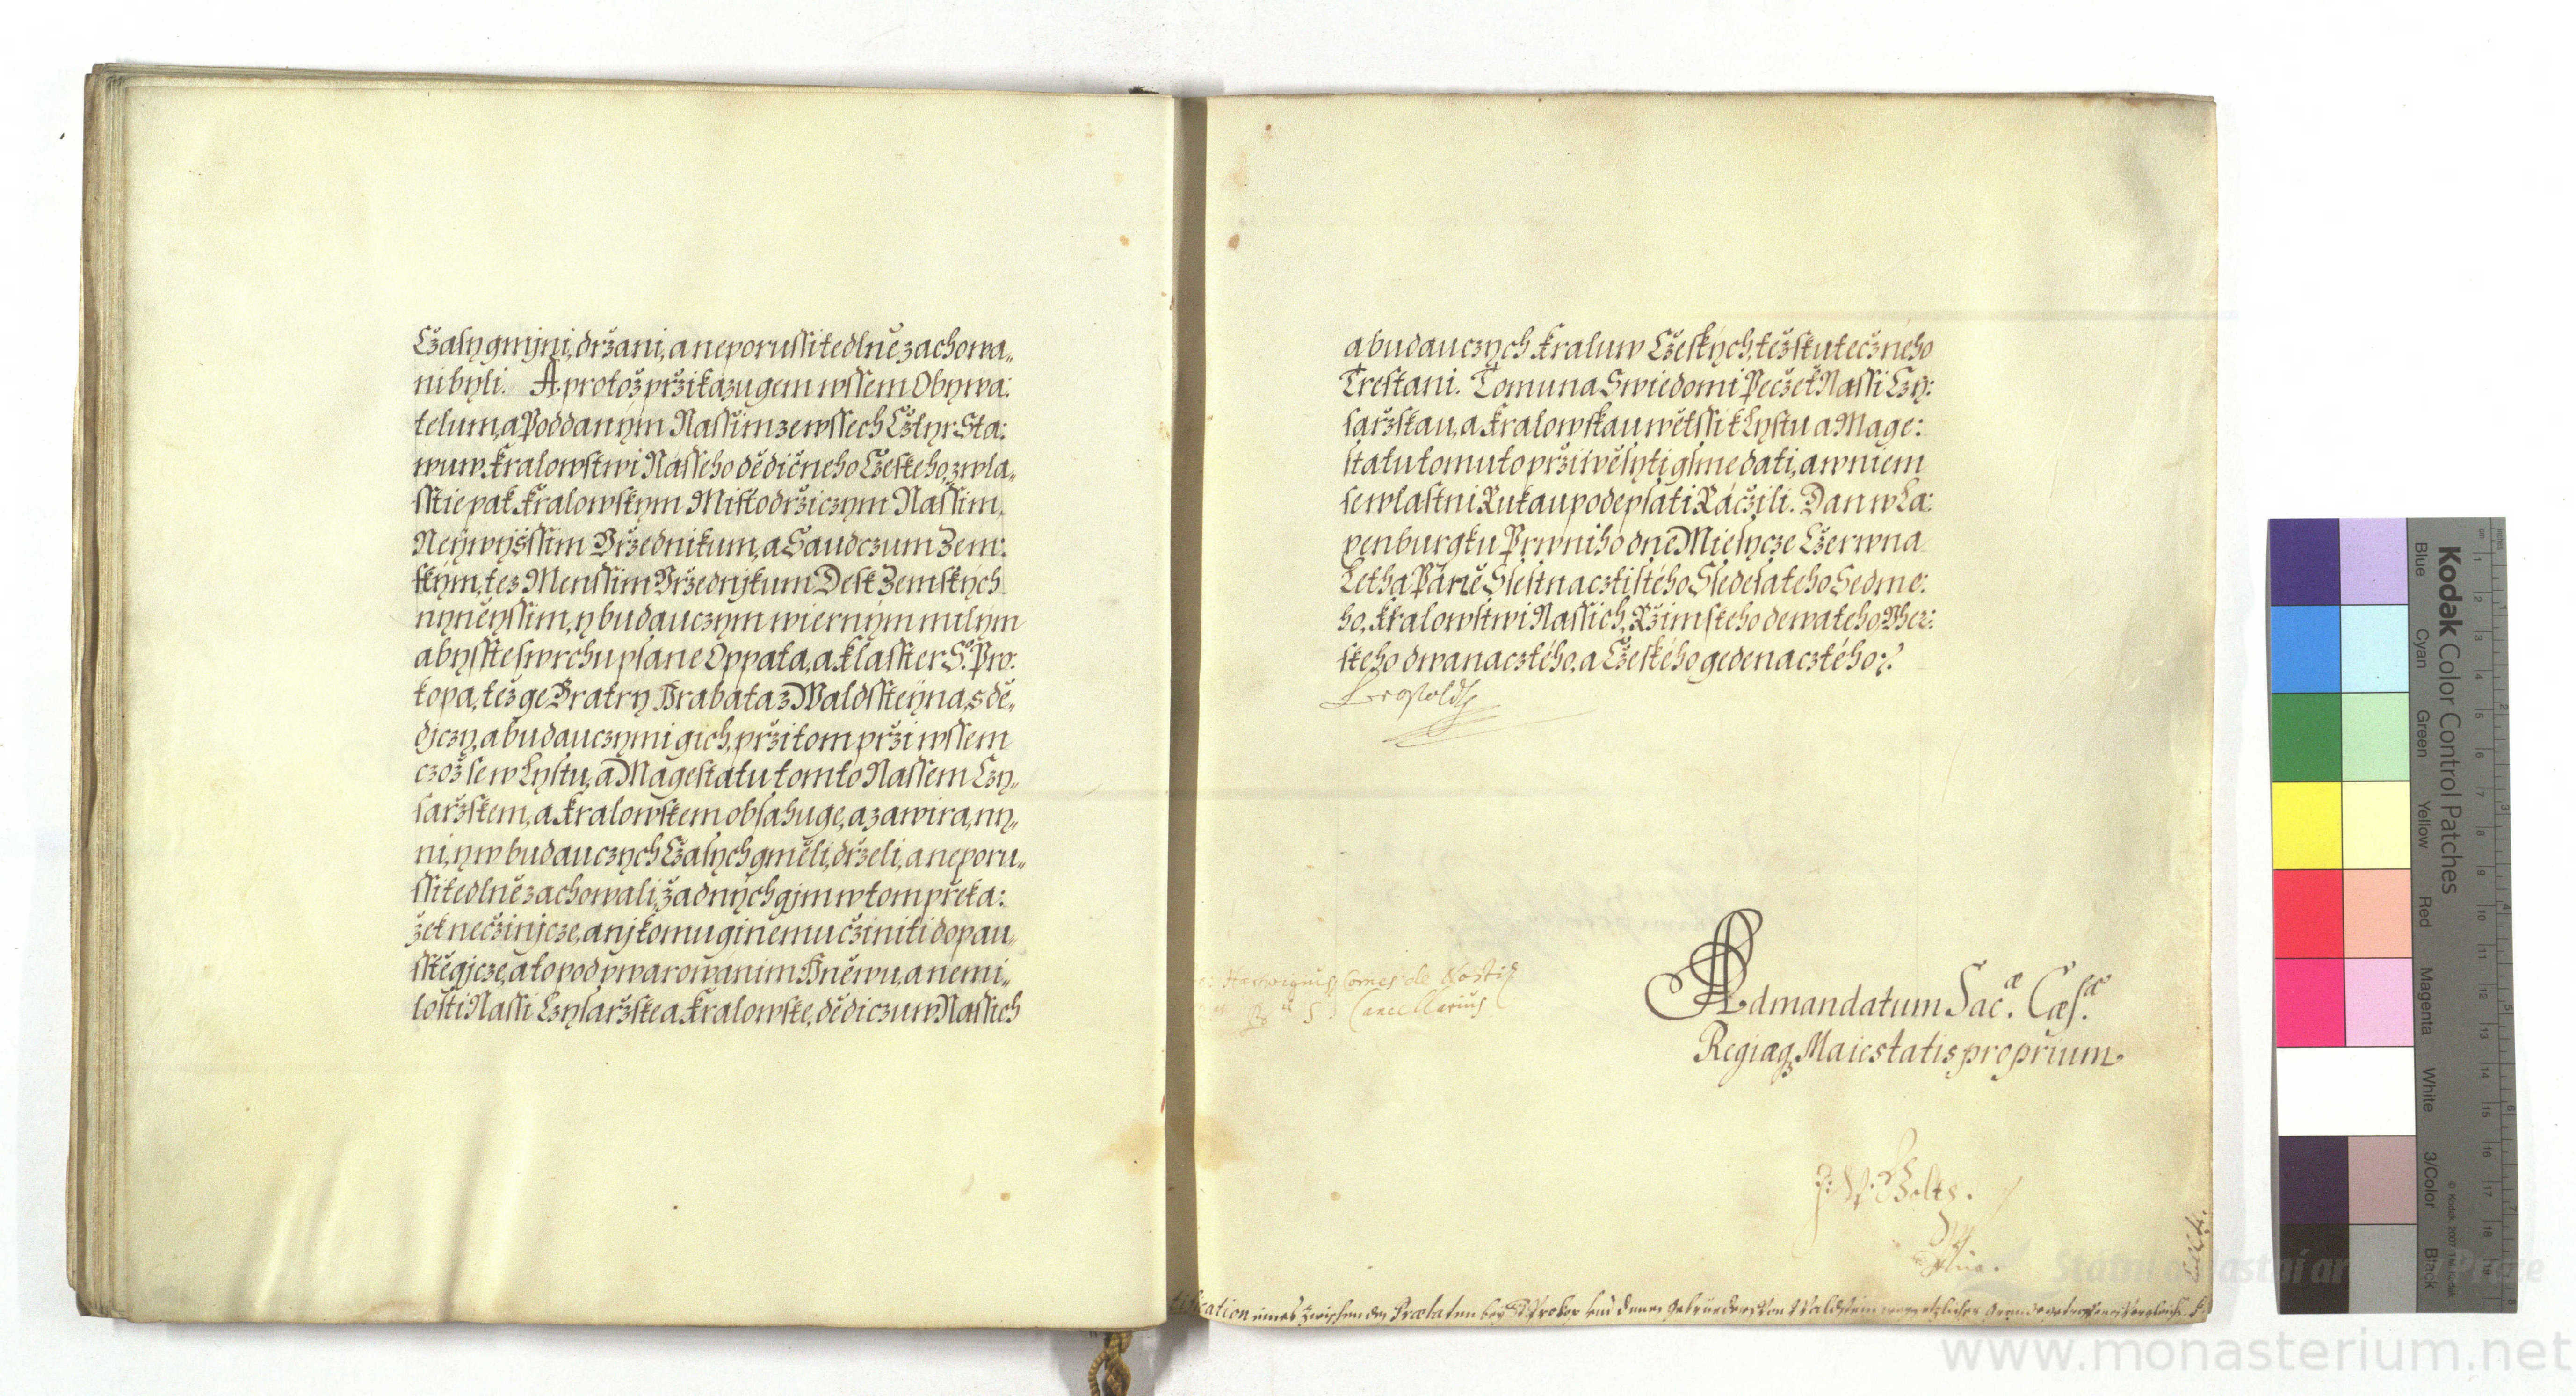 Cžasy gmjni, držani, a neporussitedlně zachowa„
ni byli. A protož pržikazugem wssem Obywa:
telum, a Poddanym Nassim ze wssech Cžtyr Sta:
wuw Kralowstwi Nasseho dědičneho Cžeskeho, zwla„
sstie pak Kralowskym Mistodržiczym Nassim,
Neywyšssim Vržednikum, a Saudczum Zem:
skym, tez Menssim Vržednjkum Desk Zemskych
nyněyssim, y budauczym wiernym milym
abysste swrchupsane Oppata, a Klasster S: Pro:
kopa, tež ge Bratry Hrabata z Waldssteyna, s dě„
djczy, a budauczymi gich, pržitom prži wssem
czož se w Lystu, a Magestatu tomto Nassem Czy„
saržskem, a Kralowskem obsahuge, a zawira, ny„
ni, y w budauczych Cžasych gměli, drželi, a neporu„
ssitedlně zachowali, žadnych gjm w tom překa:
žek nečžinjcze, anj komu ginemu čžiniti dopau„
sstěgjcze, a to pod vwarowanim Hněwu, a nemi„
losti Nassi Czysaržske a Kralowske, dědiczuw Nassich
a budauczych Kraluw Cžeskych, též skutečzného
Trestani. Tomu na Swiedomi Pečžet Nassi Czy:
saržskau, a Kralowskau wětssi k Lystu a Mage:
statu tomuto prži wěsyti gsme dati, a w niem
se wlastni Rukau podepsati Ráčžili. Dan w La:
xenburgku Prwniho dne Miesycze Cžerwna
Letha Páně Ssestnacztistého Ssedesateho Sedme:
ho, Kralowstwi Nassich, Ržimskeho dewateho Vher:
skeho dwanacztého, a Cžeského gedenacztého:
Leopoldt
Hartwigius Comes de Nostitz
Cancellarius
Ad mandatum Sac.æ Cæs.æ
Regiæq Maiestatis proprium
www.monasterium.net
Kodak Color Control Patches
Blue Cyan Green Yellow Red Magenta White 3/Color Black